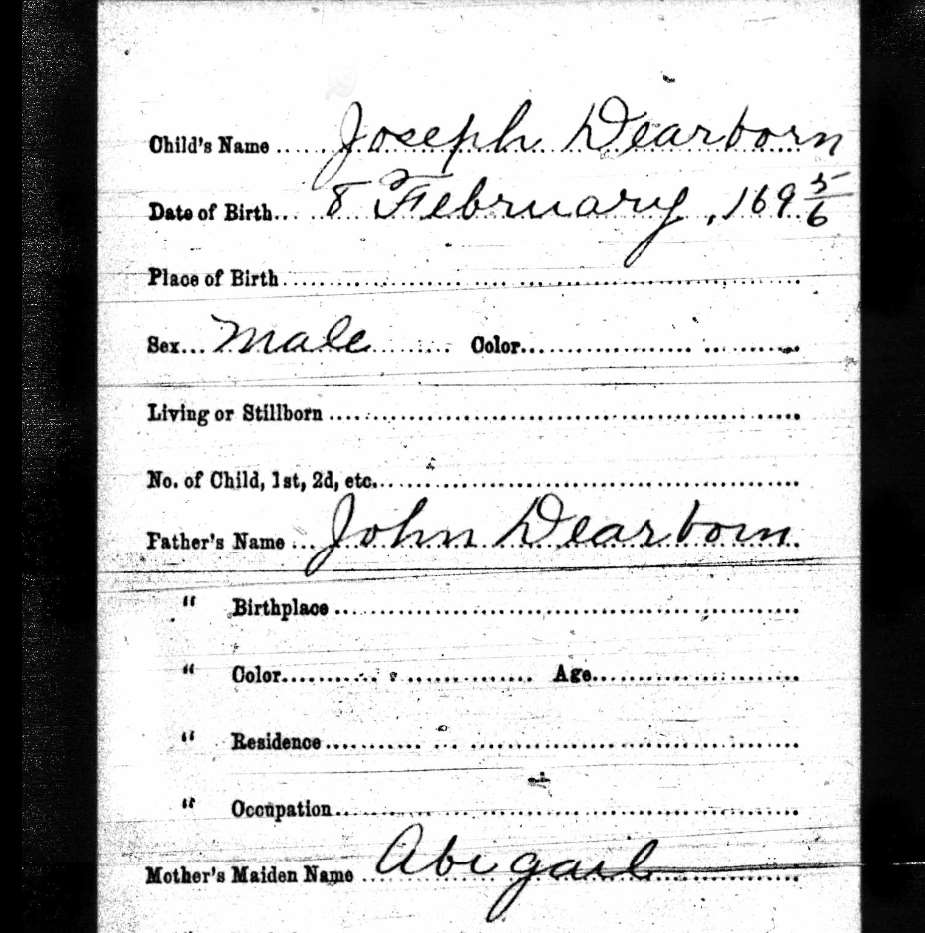 Child's Name ..... Joseph Dearborn
Date of Birth... 8 February, 169 5/6
Place of Birth ..............................
Sex... Male .......... Color..............................
Living or Stillborn ..............................
No. of Child, 1st, 2d, etc...............................
Father's Name ... John Dearborn
" Birthplace ..............................
" Color.............................. Age....................
" Residence ..............................
" Occupation..............................
Mother's Maiden Name .... Abigail